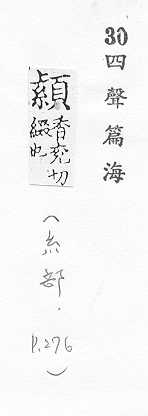 30四聲篇海
兖切
綴也
(糸部.
P.276)